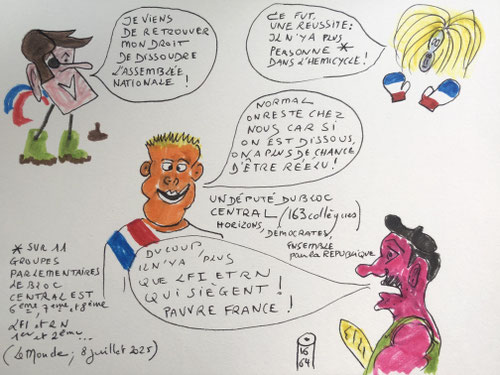 JE VIENS
DE RETROUVER
MON DROIT
DE DISSOUDRE
L'ASSEMBLÉE
NATIONALE !
CE FUT
UNE RÉUSSITE :
IL N'Y A PLUS
PERSONNE *
DANS L'HEMICYCLE !
NORMAL
ON RESTE CHEZ
NOUS CAR SI
ON EST DISSOUS,
ON A PLUS DE CHANCE
D'ÊTRE RÉELU !
UN DÉPUTÉ DU BLOC
CENTRAL (163 collègues)
HORIZONS, DÉMOCRATES,
ENSEMBLE
pour la REPUBLIQUE
DU COUP
IL N'Y A PLUS
QUE LFI ET RN
QUI SIÈGENT !
PAUVRE FRANCE !
* SUR 11
GROUPES
PARLEMENTAIRES
LE BLOC
CENTRAL EST
6ème, 7ème, et 8ème,
LFI et RN
1er et 2ème...
(Le Monde; 8 juillet 2025)
16
64